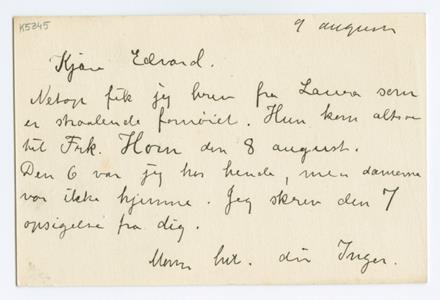 K5345
9 august
Kjære Edvard.
Netop fik jeg brev fra Laura som
er straalende fornøiet. Hun kom altsaa
til Frk. Horn den 8 august.
Den 6 var jeg hos hende, men damerne
var ikke hjemme. Jeg skrev den 7
opsigelse fra dig.
din Inger.